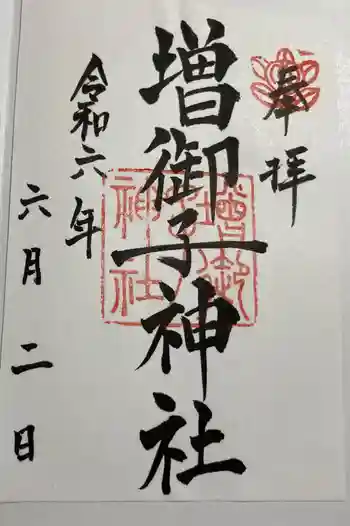 奉拝
増御子神社
令和六年
六月二日
増御子神社